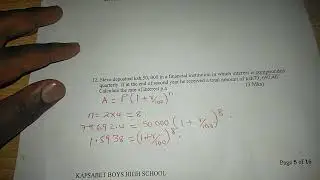 12. Steve deposited ksh.50,000 in a financial institution in which interest is compounded
quarterly. If at the end of second year he received a total amount of ksh79,692.40.
Calculate the rate of interest p.a (3 Mks)
A = P(1+r/100)^n
n = 2x4 = 8
79692.4 = 50,000 (1+ r/100)^8
1.5938 = (1+r/100)^8.
KAPSABET BOYS HIGH SCHOOL
Page 5 of 16